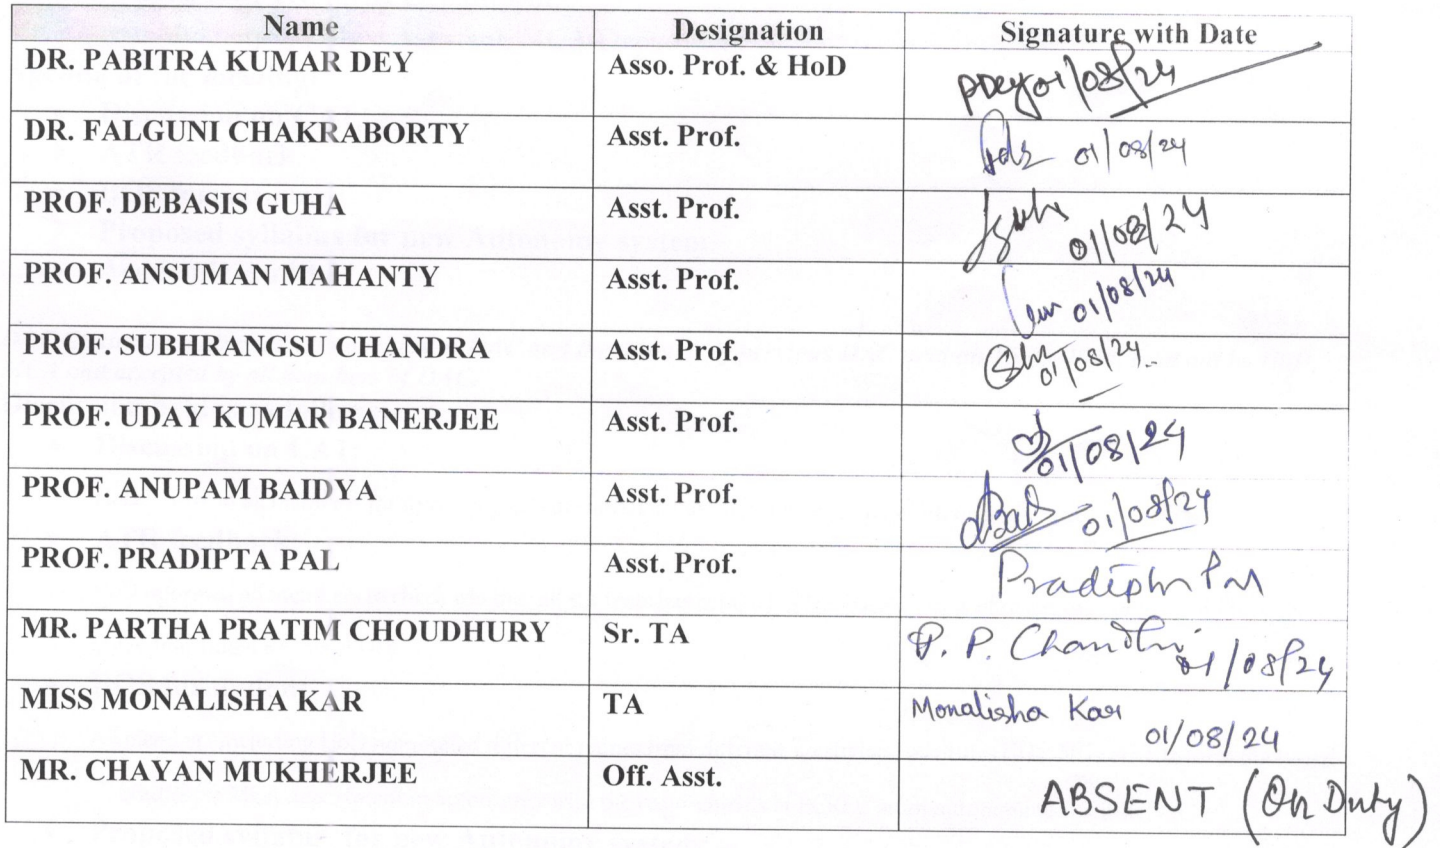 Name Designation Signature with Date
DR. PABITRA KUMAR DEY Asso. Prof. & HoD PDey 01/08/24
DR. FALGUNI CHAKRABORTY Asst. Prof. 01/08/24
PROF. DEBASIS GUHA Asst. Prof. Guha 01/08/24
PROF. ANSUMAN MAHANTY Asst. Prof. 01/08/24
PROF. SUBHRANGSU CHANDRA Asst. Prof. 01/08/24
PROF. UDAY KUMAR BANERJEE Asst. Prof. 01/08/24
PROF. ANUPAM BAIDYA Asst. Prof. 01/08/24
PROF. PRADIPTA PAL Asst. Prof. Pradipta Pal
MR. PARTHA PRATIM CHOUDHURY Sr. TA P. P. 01/08/24
MISS MONALISHA KAR TA Monalisha Kar
01/08/24
MR. CHAYAN MUKHERJEE Off. Asst. ABSENT (On Duty)